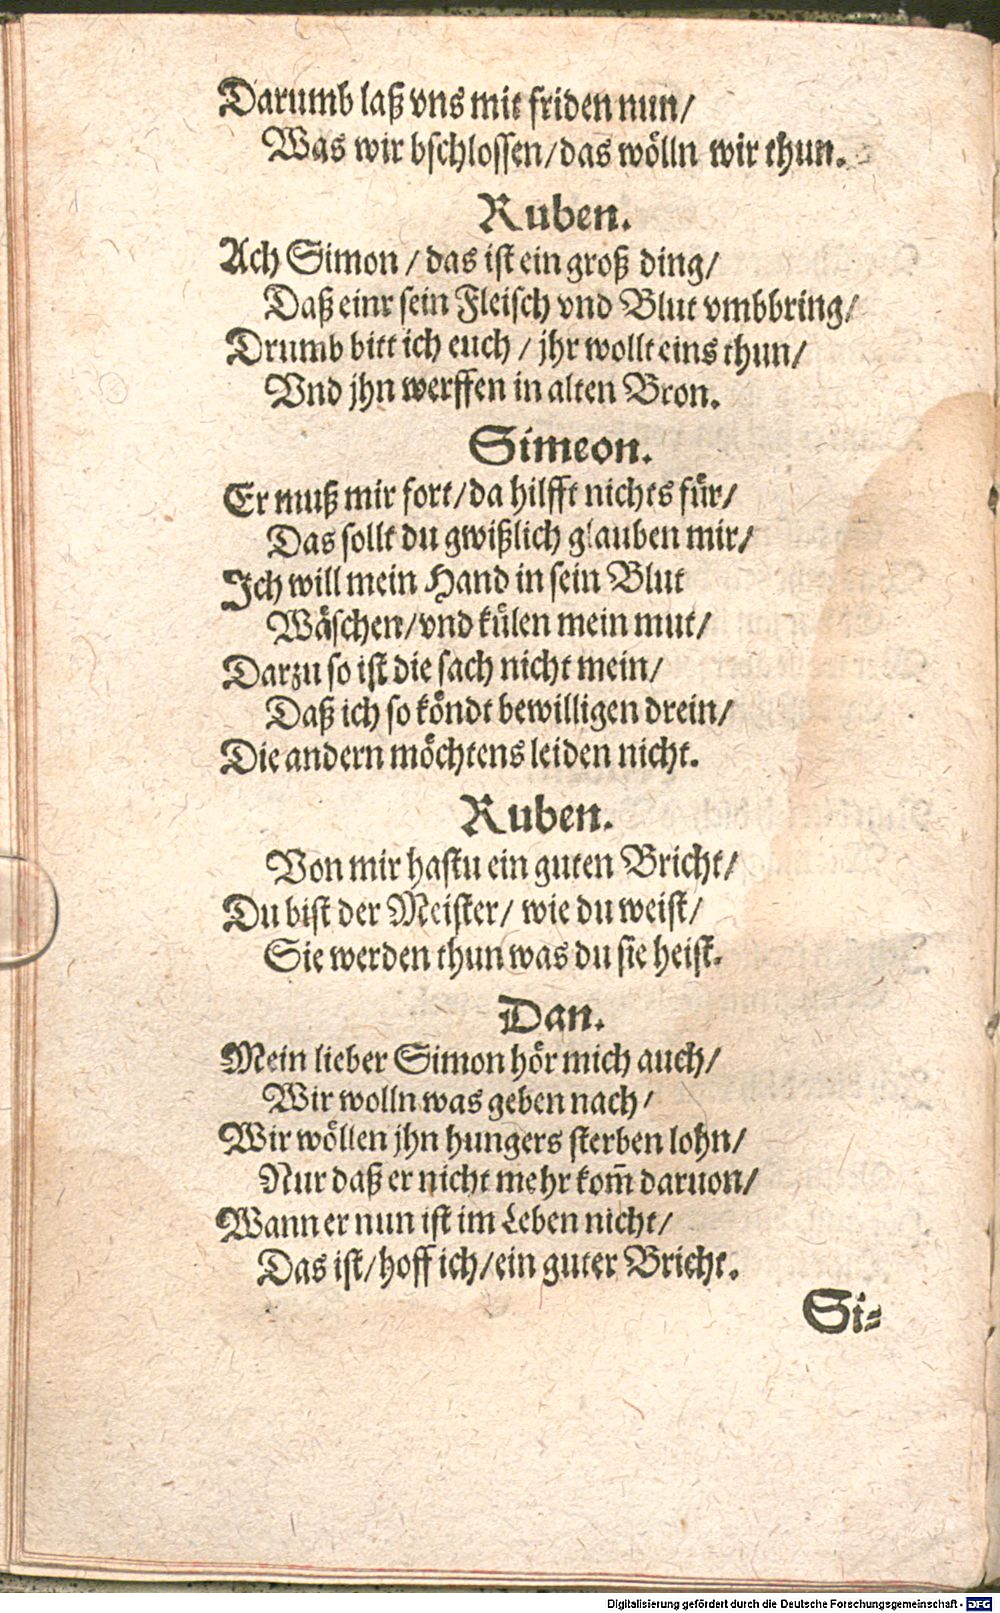 Darumb laß vns mit friden nun/
Was wir bschlossen/das wölln wir thun.
Ruben.
Ach Simon/das ist ein groß ding/
Daß einr sein Fleisch vnd Blut vmbbring/
Drumb bitt ich euch/jhr wollt eins thun/
Vnd jhn werffen in alten Bron.
Simeon.
Er muß mir fort/da hilfft nichts für/
Das sollt du gwißlich glauben mir/
Ich will mein Hand in sein Blut
Wäschen/vnd külen mein mut/
Darzu so ist die sach nicht mein/
Daß ich so köndt bewilligen drein/
Die andern möchtens leiden nicht.
Ruben.
Von mir hastu ein guten Bricht/
Du bist der Meister/wie du weist/
Sie werden thun was du sie heist.
Dan.
Mein lieber Simon hör mich auch/
Wir wolln was geben nach/
Wir wöllen jhn hungers sterben lohn/
Nur daß er nicht mehr kom̃ daruon/
Wann er nun ist im Leben nicht/
Das ist/hoff ich/ein guter Bricht.
Si⸗
Digitalisierung gefördert durch die Deutsche Forschungsgemeinschaft - DFG